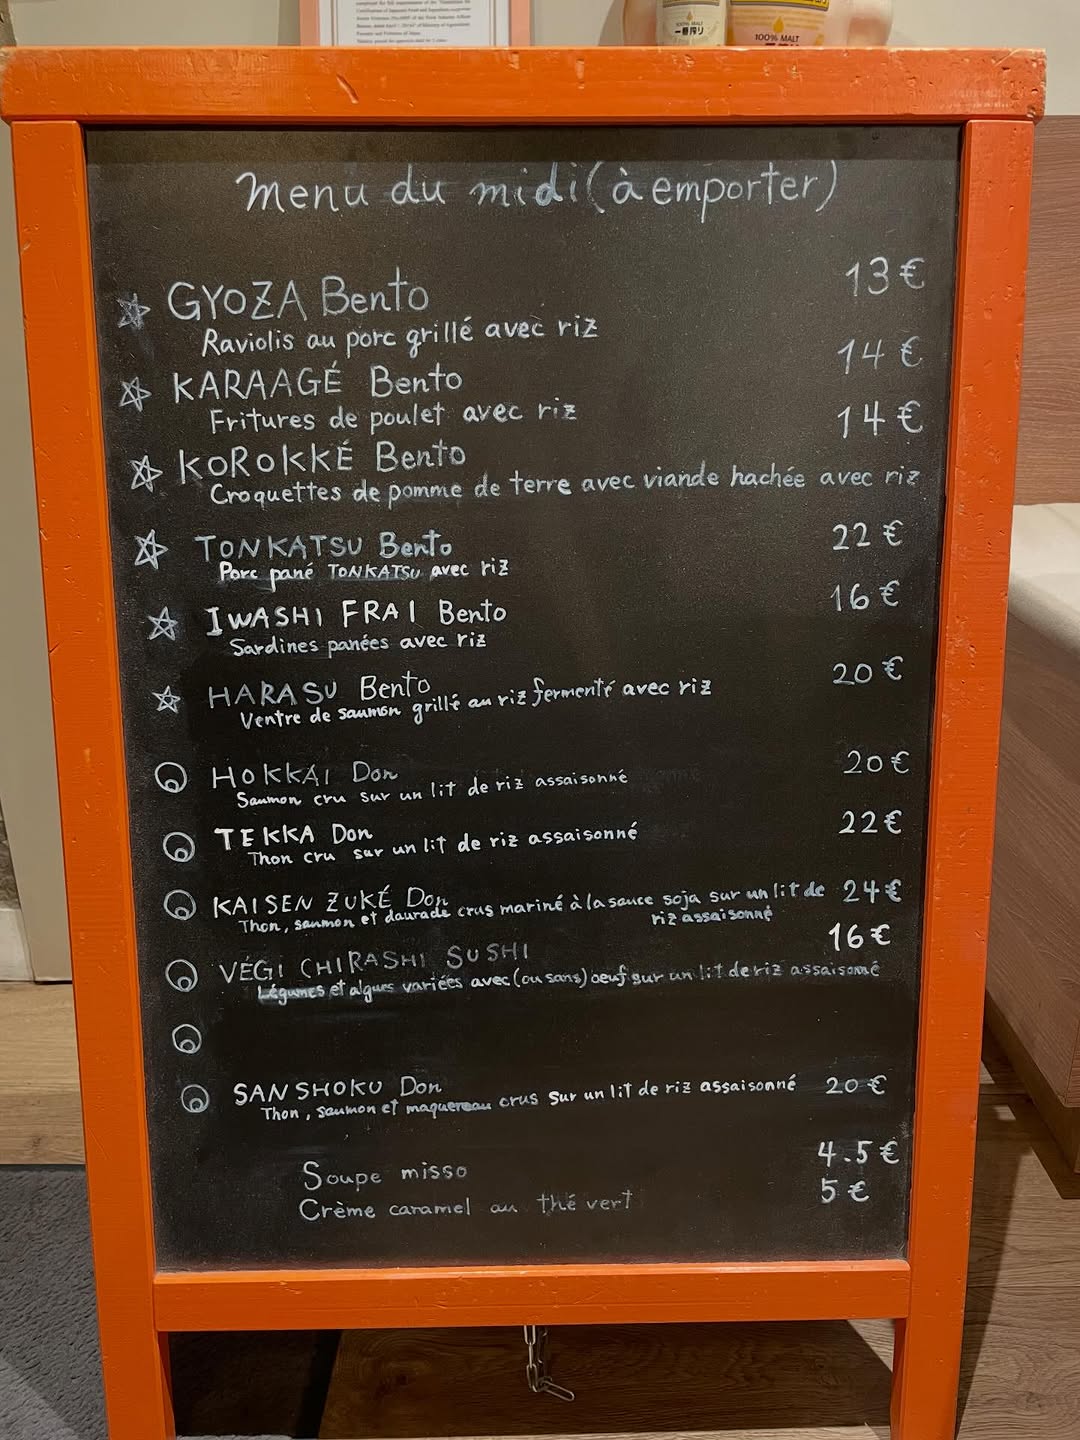 100% MALT
一番搾り
100% MALT
一番搾り
Menu du midi (à emporter)
GYOZA Bento 13 €
Raviolis au porc grillé avec riz
KARAAGÉ Bento 14 €
Fritures de poulet avec riz
KOROKKÉ Bento 14 €
Croquettes de pomme de terre avec viande hachée avec riz
TONKATSU Bento 22 €
Porc pané TONKATSU avec riz
IWASHI FRAI Bento 16 €
Sardines panées avec riz
HARASU Bento 20 €
Ventre de saumon grillé au riz fermenté avec riz
HOKKAI Don 20 €
Saumon cru sur un lit de riz assaisonné
TEKKA Don 22 €
Thon cru sur un lit de riz assaisonné
KAISEN ZUKÉ Don 24 €
Thon, saumon et daurade crus mariné à la sauce soja sur un lit de
riz assaisonné
VÉGI CHIRASHI SUSHI 16 €
Légumes et algues variées avec (ou sans) oeuf sur un lit de riz assaisonné
SANSHOKU Don 20 €
Thon, saumon et maquereau crus sur un lit de riz assaisonné
Soupe misso 4.5 €
Crème caramel au thé vert 5 €